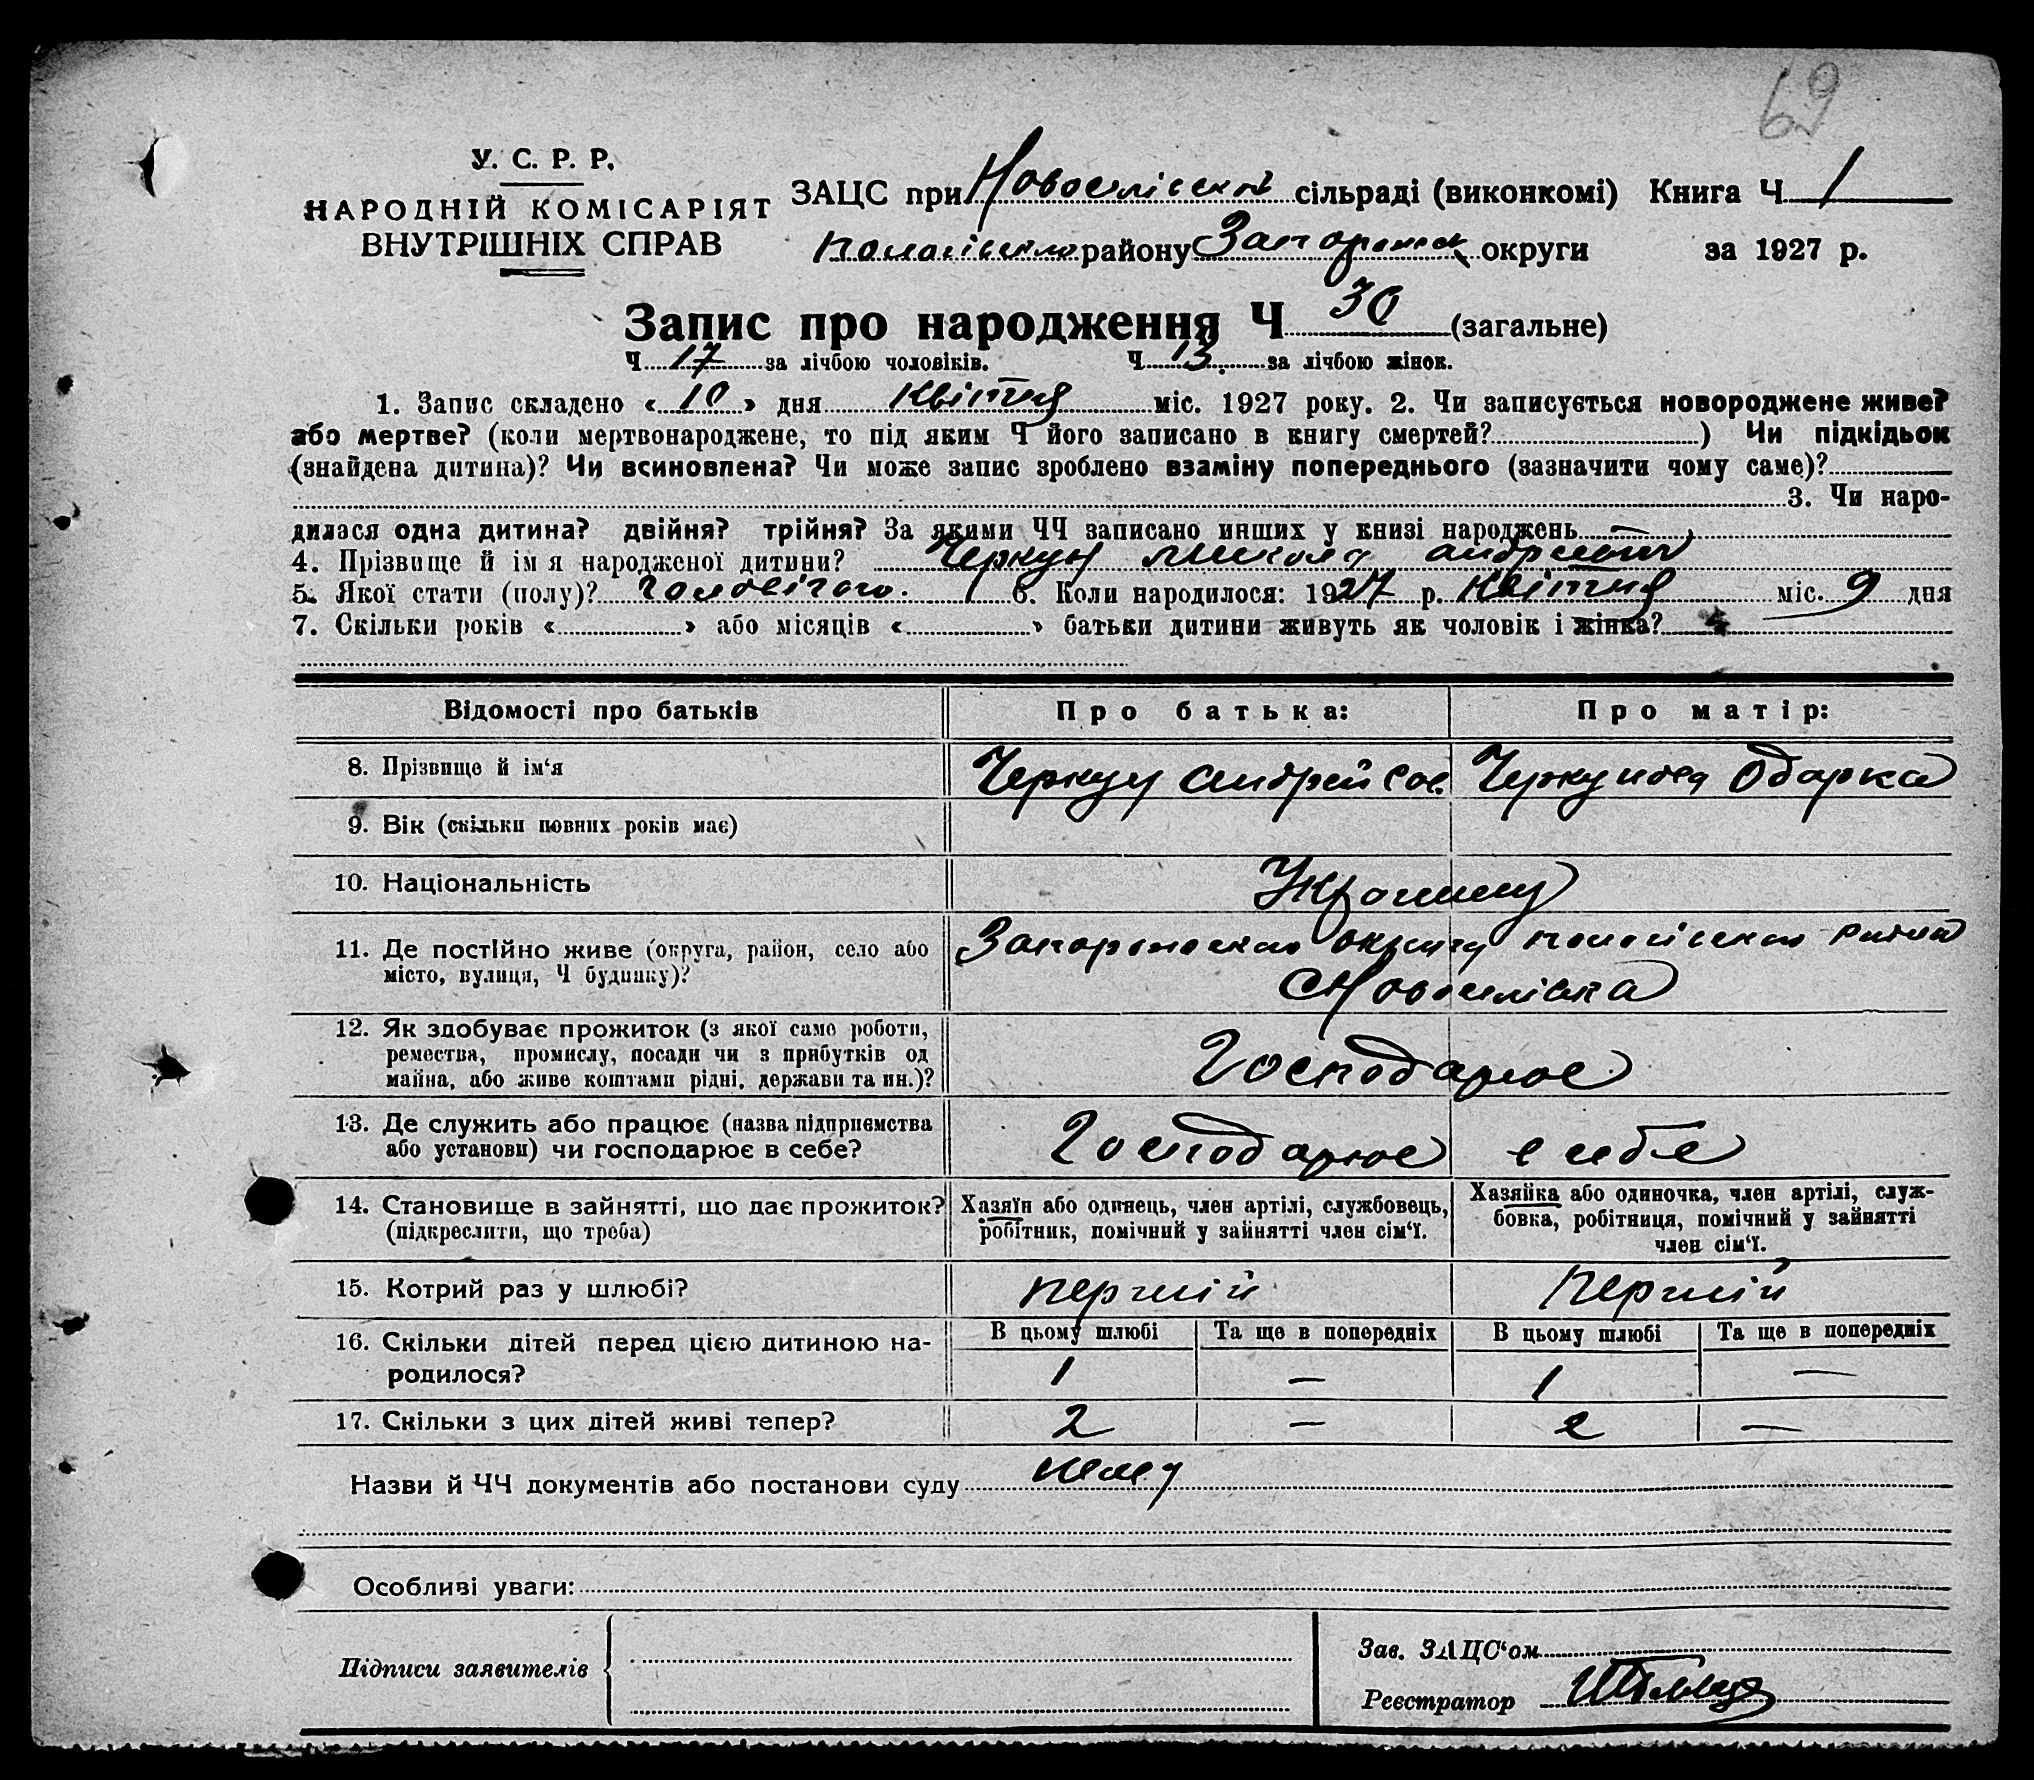 69
У. С. Р. Р.
НАРОДНІЙ КОМІСАРІЯТ
ВНУТРІШНІХ СПРАВ
ЗАЦС при сільраді (виконкомі) Книга Ч 1
району округи за 1927 р.
Запис про народження Ч 30 (загальне)
Ч 17 за лічбою чоловіків. Ч 13 за лічбою жінок.
1. Запис складено « 10 » дня Квітня міс. 1927 року. 2. Чи записується новороджене живе?
або мертве? (коли мертвонароджене, то під яким Ч його записано в книгу смертей? ) Чи підкідьок
(знайдена дитина)? Чи всиновлена? Чи може запис зроблено взаміну попереднього (зазначити чому саме)?
3. Чи наро-
дилася одна дитина? двійня? трійня? За якими ЧЧ записано инших у книзі народжень
4. Прізвище й ім я народженої дитини? Черкун Микола
5. Якої стати (полу)? 6. Коли народилося: 1927 р. Квітня міс. 9 дня
7. Скільки років « » або місяців « » батьки дитини живуть як чоловік і жінка?
Відомості про батьків Про батька: Про матір:
8. Прізвище й ім‘я Черкун Андрей Черкунова Одарка
9. Вік (скільки повних років має)
10. Національність
11. Де постійно живе (округа, район, село або
місто, вулиця, Ч будинку)?
Новоселівка
12. Як здобуває прожиток (з якої само роботи,
ремества, промислу, посади чи з прибутків од
майна, або живе коштами рідні, держави та ин.)?
Господарює
13. Де служить або працює (назва підприємства
або установи) чи господарює в себе?
Господарює в себе
14. Становище в зайнятті, що дає прожиток?
(підкреслити, що треба)
Хазяїн або одинець, член артілі, службовець,
робітник, помічний у зайнятті член сім‘ї.
Хазяйка або одиночка, член артілі, служ-
бовка, робітниця, помічний у зайнятті
член сім‘ї.
15. Котрий раз у шлюбі? перший перший
16. Скільки дітей перед цією дитиною на-
родилося?
В цьому шлюбі Та ще в попередніх В цьому шлюбі Та ще в попередніх
1 — 1 —
17. Скільки з цих дітей живі тепер? 2 — 2 —
Назви й ЧЧ документів або постанови суду
Особливі уваги:
Підписи заявителів
Зав. ЗАЦС‘ом
Реєстратор